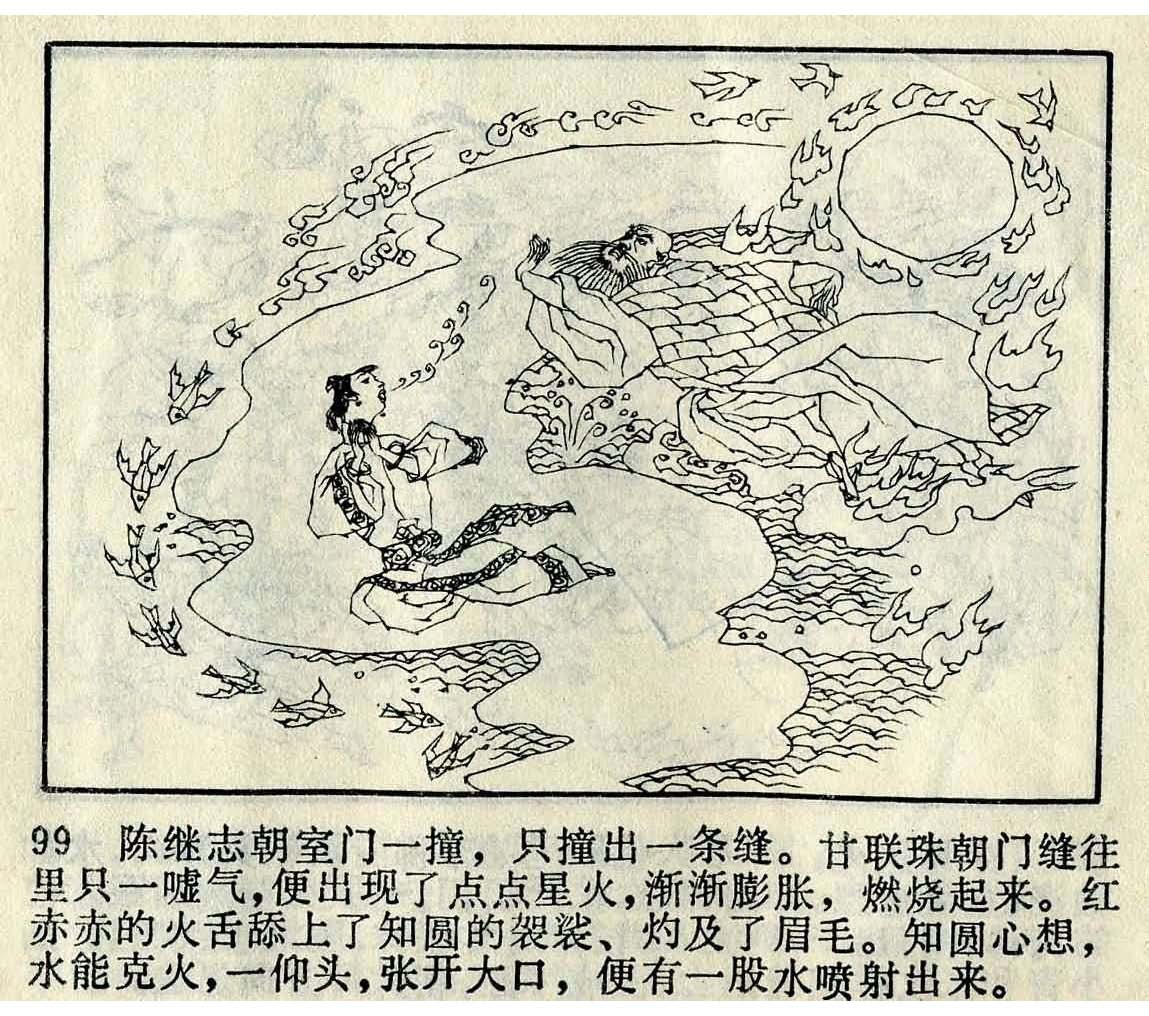 99 陈继志朝室门一撞，只撞出一条缝。甘联珠朝门缝往
里只一嘘气，便出现了点点星火，渐渐膨胀，燃烧起来。红
赤赤的火舌舔上了知圆的袈裟、灼及了眉毛。知圆心想，
水能克火，一仰头，张开大口，便有一股水喷射出来。